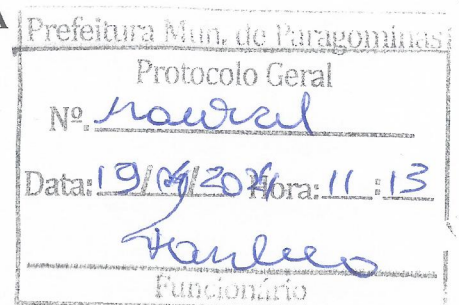 A
Prefeitura Mun. de Paragominas
Protocolo Geral
Nº.
Data: 19/04/2024 Hora: 11:13
Funcionário